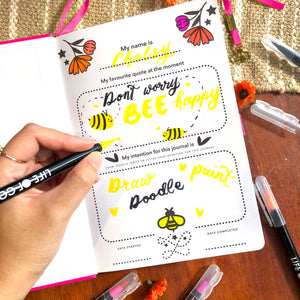 My name is
Chelsy
My favourite quote at the moment
Dont worry
BEE happy
My intention for this journal is
Draw paint
Doodle
DATE STARTED DATE COMPLETED
LIFE OF CO
LIFE